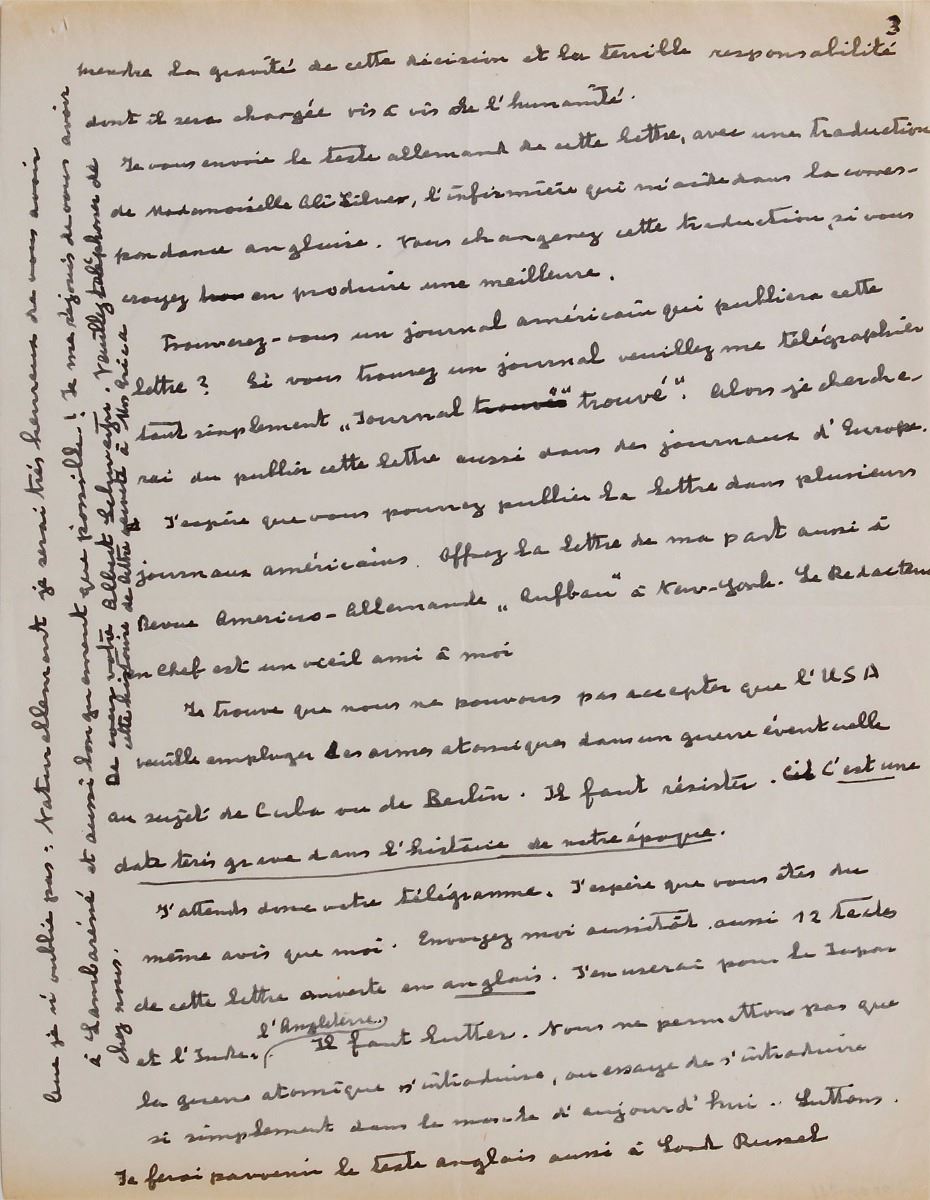 3
mendre la gravité de cette décision et la terrible responsabilité
dont il sera chargée vis à vis de l'humanité.
Je vous envoie le texte allemand de cette lettre, avec une traduction
de Mademoiselle Ali Silver, l'infirmière qui m'aide dans la corres-
pondance anglaise. Vous changerez cette traduction, si vous
croyez en produire une meilleure.
Trouverez-vous un journal américain qui publiera cette
lettre? Si vous trouvez un journal veuillez me télégraphier
tout simplement „Journal trouvé" trouvé". Alors je cherche-
rai du publier cette lettre aussi dans des journaux d'Europe.
J'espère que vous pourrez publier la lettre dans plusieurs
journaux américains. Offrez la lettre de ma part aussi à
Revue Americo-Allemande „Aufbau" à New-York. Le Redacteur
en Chef est un vieil ami à moi
Je trouve que nous ne pouvons pas accepter que l'USA
veuille employer des armes atomiques dans un guerre éventuelle
au sujet de Cuba ou de Berlin. Il faut résister. C'est une
date très grave dans l'histoire de notre époque.
J'attends donc votre télégramme. J'espère que vous êtes du
même avis que moi. Envoyez moi aussitôt aussi 12 textes
de cette lettre ouverte en anglais. J'en userai pour le Japon
et l'Inde. l'Angleterre. Il faut lutter. Nous ne permetton pas que
la guerre atomique s'introduise, ou essaye de s'introduire
si simplement dans le monde d'aujourd'hui. Luttons.
Je ferai parvenir le texte anglais aussi à Lord Russel
Que je n'oublie pas: Naturellement je serai très heureux de vous avoir
à Lambaréné et aussi longuement que possible! Je me réjouis de vous avoir
chez nous. De coeur votre Albert Schweitzer. Veuillez téléphoner de
cette histoire de lettre ouverte à Mrs Erica